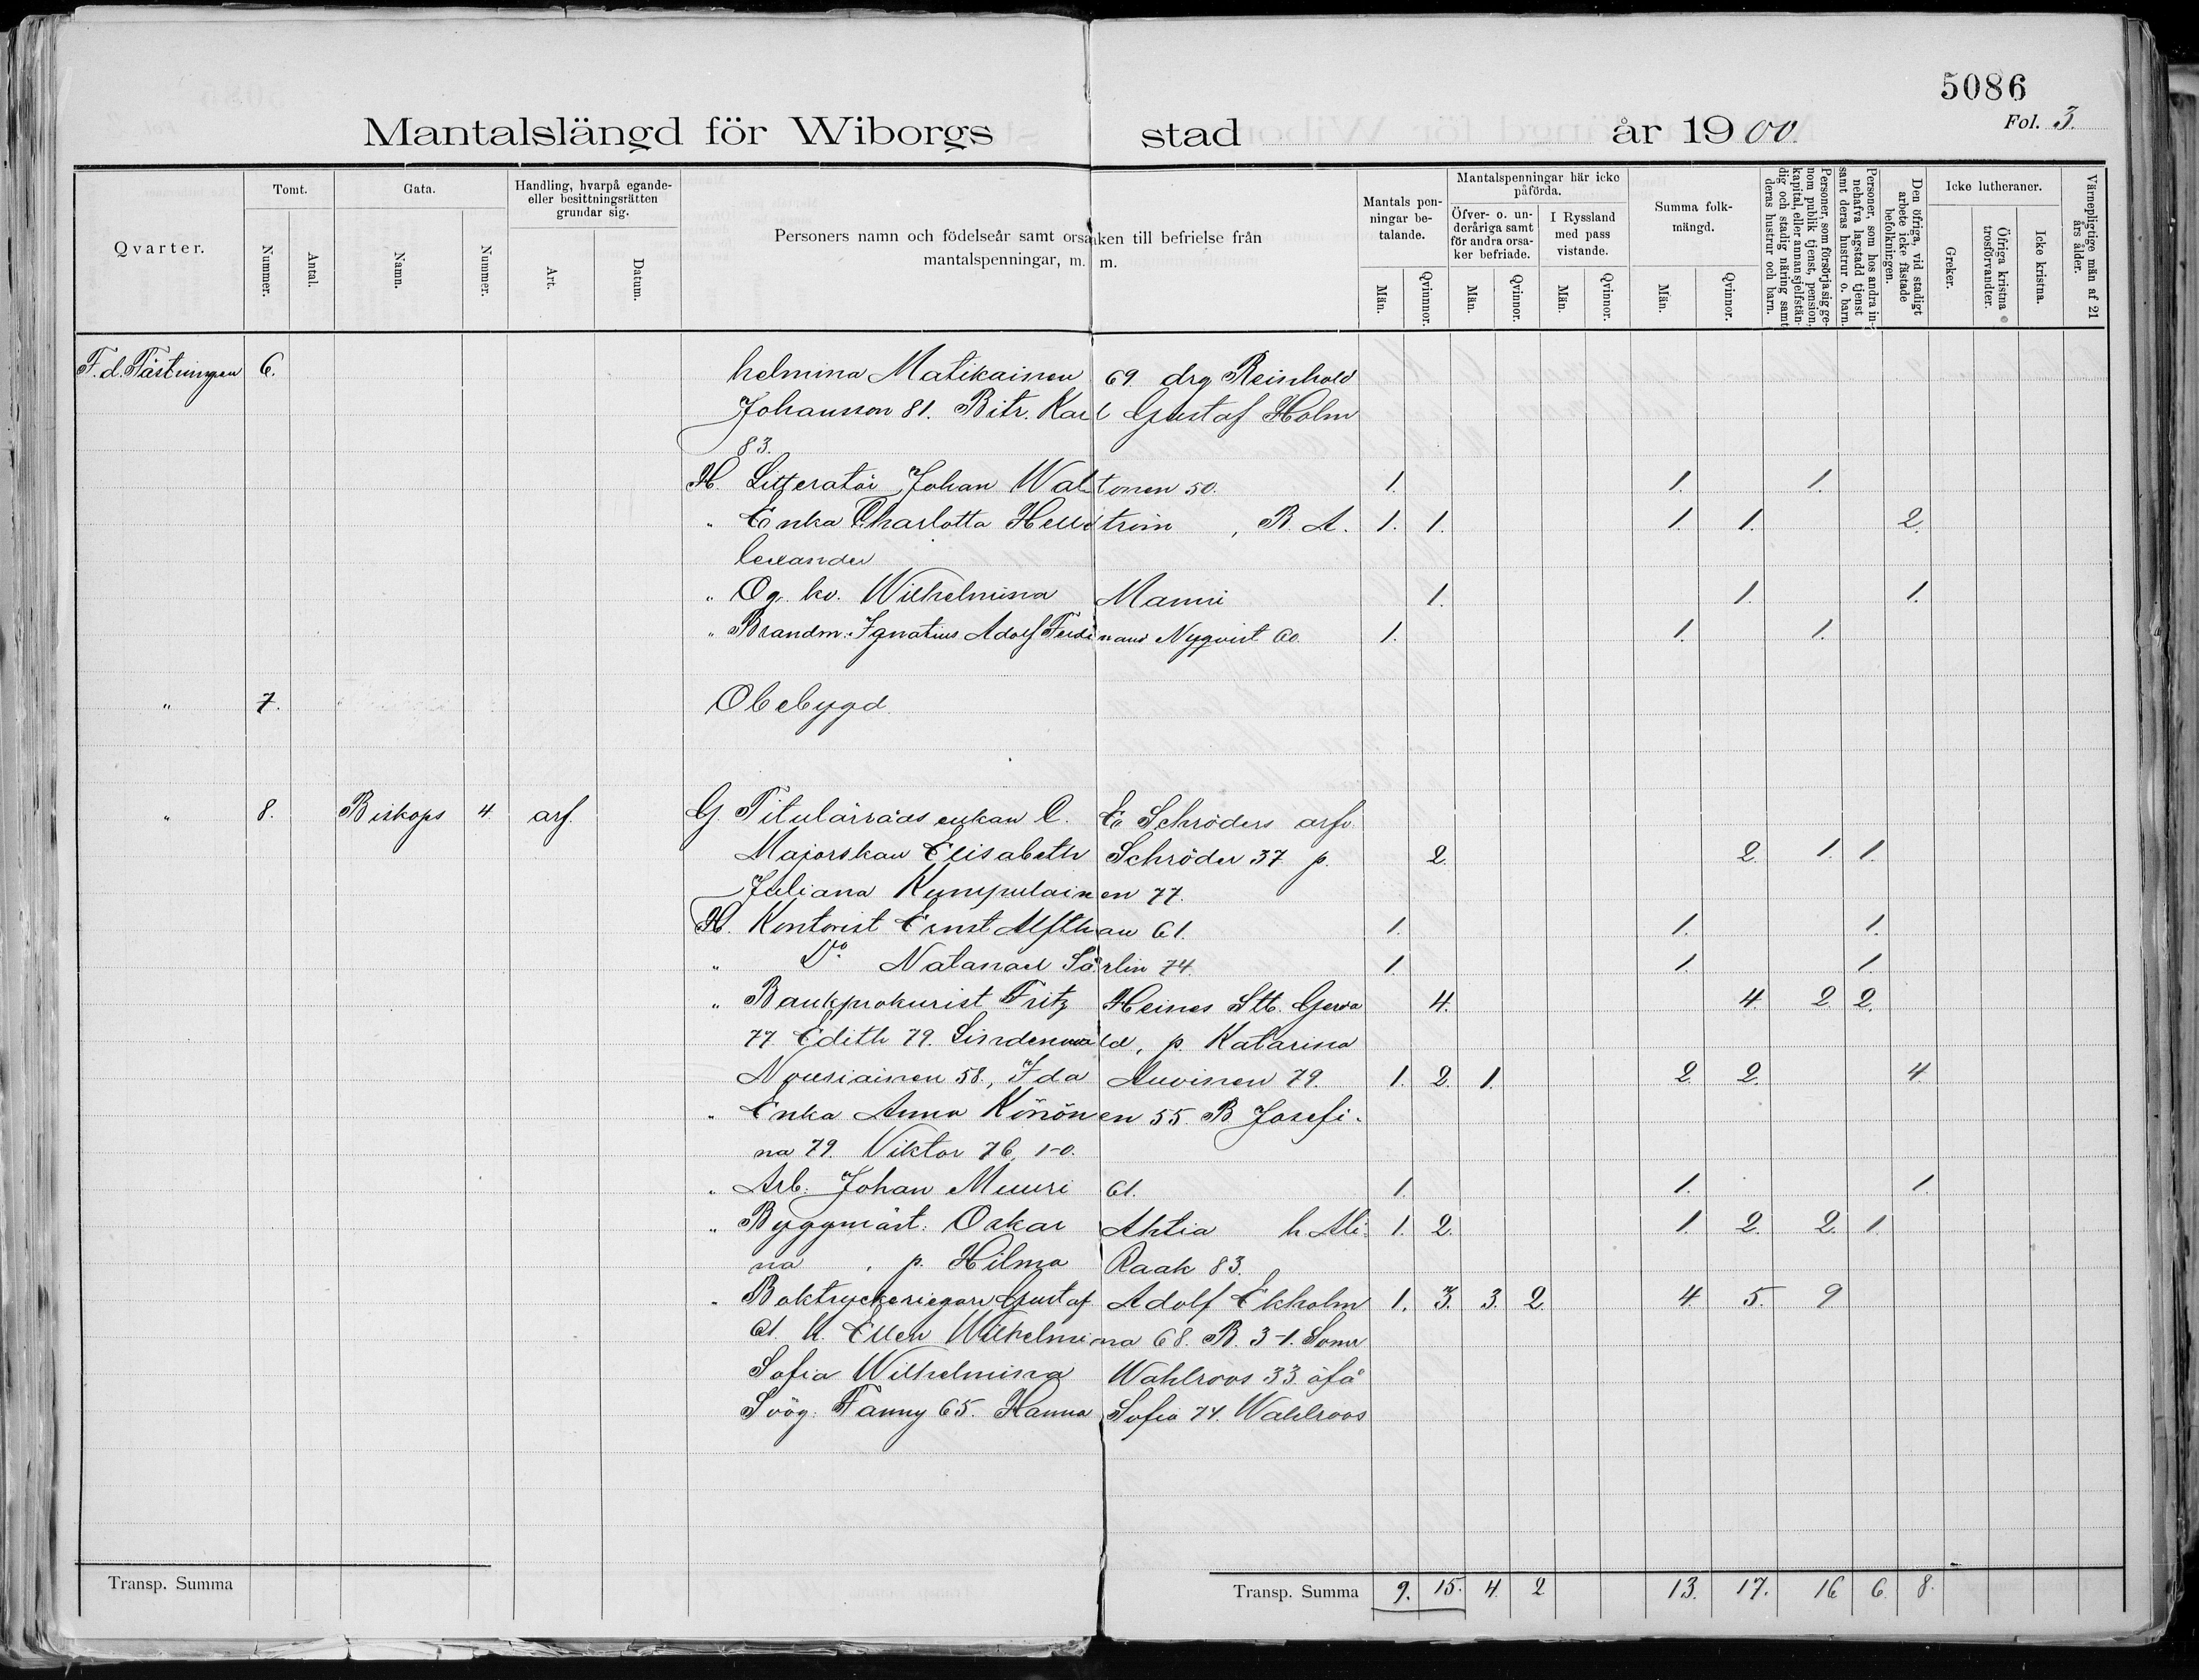 5086
Mantalslängd för Wiborgs stad år 1900.
Fol. 3.
Qvarter.
Tomt.
Nummer.
Antal.
Gata.
Namn.
Nummer.
Handling, hvarpå egande- eller besittningsrätten grundar sig.
Art.
Datum.
Personers namn och födelseår samt orsaken till befrielse från
mantalspenningar, m. m.
Mantals pen-
ningar be-
talande.
Män.
Qvinnor.
Mantalspenningar här icke
påförda.
Öfver- o. un-
deråriga samt
för andra orsa-
ker befriade.
Män.
Qvinnor.
I Ryssland
med pass
vistande.
Män.
Qvinnor.
Summa folk-
mängd.
Män.
Qvinnor.
Personer, som försörja sig ge-
nom publik tjenst, pension,
kapital, eller annan sjelfstän-
dig och stadig näring samt
deras hustrur och barn.
Personer, som hos andra in-
nehafva lagstadd tjenst
samt deras hustrur o. barn.
Den öfriga, vid stadigt
arbete icke fästade
befolkningen.
Icke lutheraner.
Greker.
Öfriga kristna
trosförvandter.
Icke kristna.
Värnepligtige män af 21
års ålder.
F. d. Fästningen 6. helmina Matikainen 69. drg Reinhold
Johansson 81. Bitr. Karl Gustaf Holm
83.
H. Litteratör Johan Waltonen 50. 1. 1. 1.
" Enka Charlotta Hellström , B. A. 1. 1. 1. 1. 2.
lexander
" Og. kv. Wilhelmina Manni 1. 1. 1.
" Brandm. Ignatius Adolf Ferdinand Nyqvist 60. 1. 1. 1.
" 7. Obebygd.
" 8. Biskops 4. arf. G. Titulärrådsenkan C. E. Schröders arfv.
Majorskan Elisabeth Schröder 37 p. 2. 2. 1. 1.
Juliana Kumpulainen 77.
H. Kontorist Ernst Alfthan 61. 1. 1. 1.
" Do. Natanael Sarlin 74. 1. 1. 1.
" Bankprokurist Fritz Heines Stb. Gerda 4. 4. 2. 2.
77 Edith 79. Lindenwald, p. Katarina
Nousiainen 58., Ida Auvinen 79. 1. 2. 1. 2. 2. 4.
" Enka Anna Könönen 55. B Josefi-
na 79. Viktor 76. 1-0.
" Arb. Johan Muuri 61. 1. 1. 1.
" Byggmäst. Oskar Ahtia h. Ali- 1. 2. 1. 2. 2. 1.
na , p. Hilma Raak 83.
" Boktryckeriegare Gustaf Adolf Ekholm 1. 3. 3. 2. 4. 5. 9
61. h. Ellen Wilhelmina 68. B. 3-1.
Sofia Wilhelmina Wahlroos 33. öfå
Svög. Fanny 65. Hanna Sofia 74. Wahlroos
Transp. Summa
Transp. Summa 9. 15. 4. 2 13. 17. 16 6. 8.